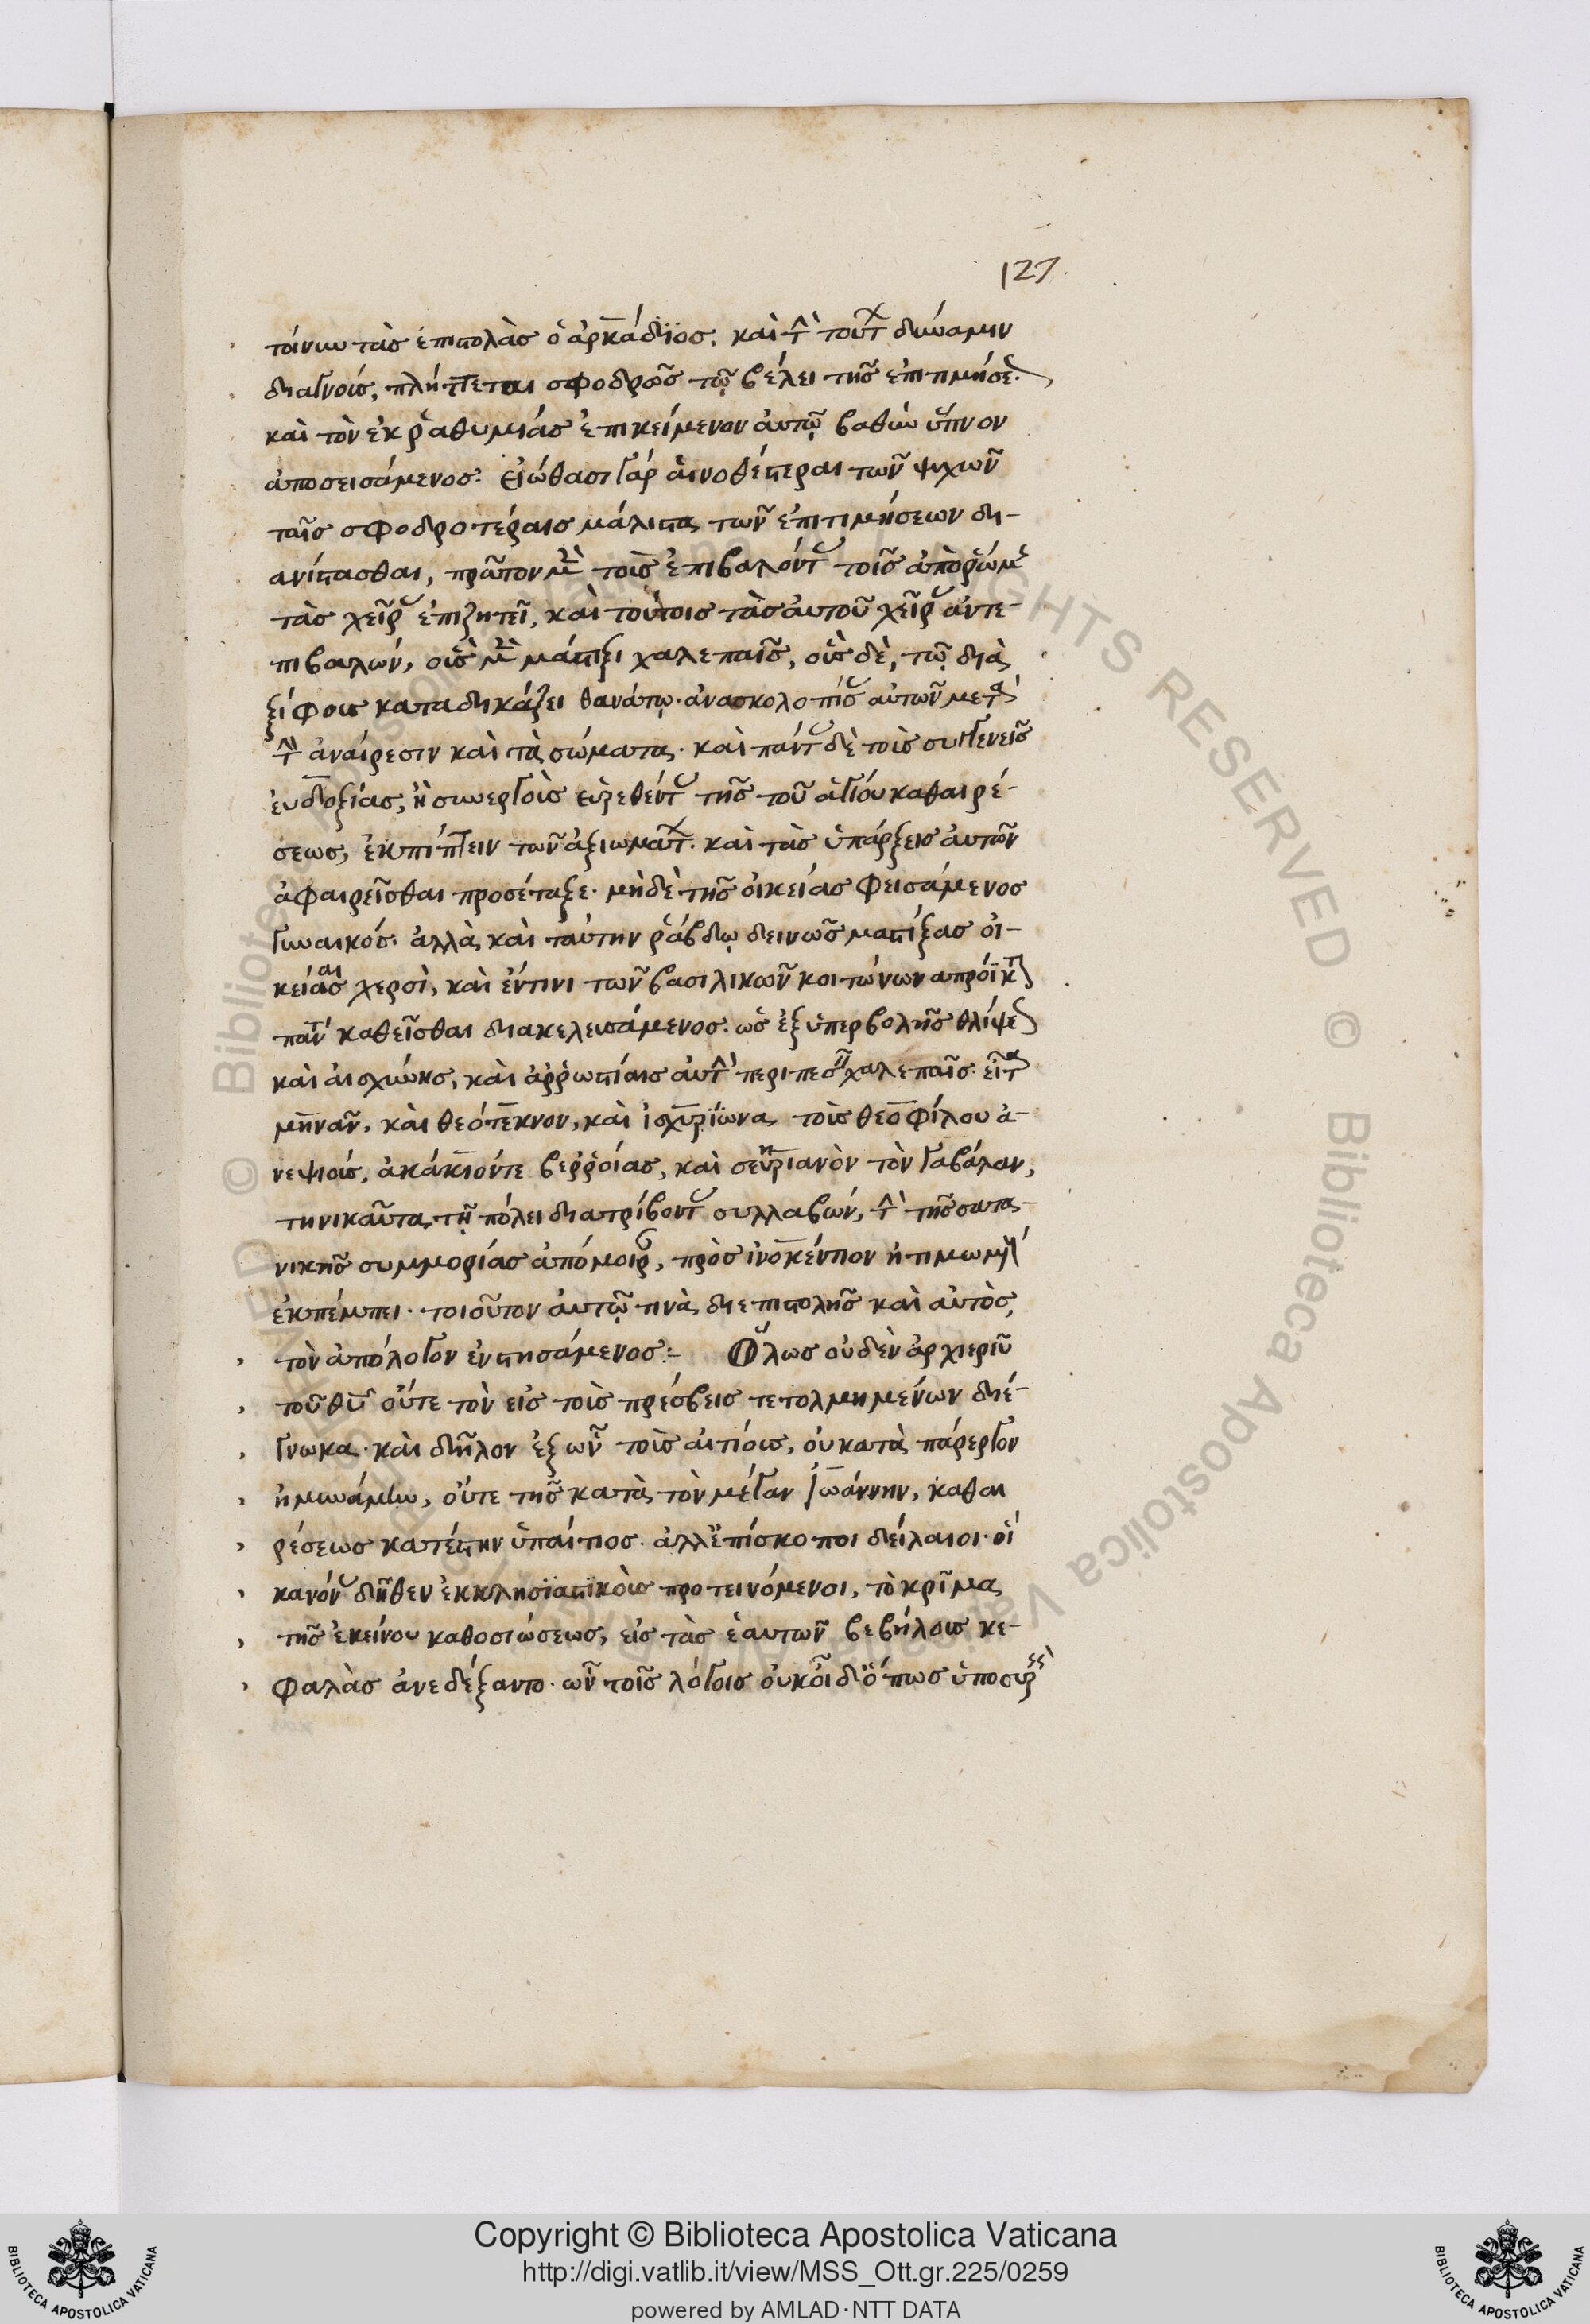 127
τοίνυν τὰς ἐπιστολὰς ὁ ἀρκάδιος. καὶ τὴν τούτων δύναμιν
διαγνοὺς, πλήττεται σφοδρῶς τῷ βέλει τῆς ἐπιτιμήσεως
καὶ τὸν ἐκ ῥαθυμίας ἐπικείμενον αὐτῷ βαθὺν ὕπνον
ἀποσεισάμενος. εἰώθασι γὰρ αἱ νοθέστεραι τῶν ψυχῶν
ταῖς σφοδροτέραις μάλιστα τῶν ἐπιτιμήσεων δι-
ανίστασθαι, πρῶτον μὲν τοὺς ἐπιβαλόντας τοῖς ἀπὸ ῥώμης
τὰς χεῖρας ἐπιζητεῖ, καὶ τούτοις τὰς αὐτοῦ χεῖρας ἀντε-
πιβαλών, οὓς μὲν μάστιξι χαλεπαῖς, οὓς δὲ, τῷ διὰ
ξίφους καταδικάζει θανάτῳ. ἀνασκολοπίσας αὐτῶν μετὰ
τὴν ἀναίρεσιν καὶ τὰ σώματα. καὶ πάντας δὲ τοὺς συγγενεῖς
ἐυδοξίας, ἢ συνεργοὺς εὑρεθέντας τῆς τοῦ ἁγίου καθαιρέ-
σεως, ἐκπίπτειν τῶν ἀξιωμάτων. καὶ τὰς ὑπάρξεις αὐτῶν
ἀφαιρεῖσθαι προσέταξε. μὴδὲ τῆς οἰκείας φεισάμενος
γυναικός. ἀλλὰ καὶ ταύτην ῥάβδῳ δεινῶς μαστίξας οἰ-
κείαις χερσὶ, καὶ ἔν τινι τῶν βασιλικῶν κοιτώνων ἀπρόϊτον
παντὶ καθεῖσθαι διακελευσάμενος. ὡς ἐξ ὑπερβολῆς θλίψεως
καὶ αἰσχύνης, καὶ ἀρρωστίαις αὐτὴν περιπεσεῖν χαλεπαῖς. εἶτα
μηνᾶν, καὶ θεότεκνον, καὶ ἰσχυρίωνα τοὺς θεοφίλου ἀ-
νεψιούς, ἀκάκιόν τε βερροίας, καὶ σευηριανὸν τὸν γαβάλων,
τηνικαῦτα τῇ πόλει διατρίβοντας συλλαβών, τὴν τῆς σατα-
νικῆς συμμορίας ἀπόμοιραν, πρὸς ἰνοκέντιον
ἐκπέμπει. τοιοῦτον αὐτῷ τινὰ δι' ἐπιστολῆς καὶ αὐτὸς,
τὸν ἀπόλογον ἐνστησάμενος:- Ὅλως οὐδὲν ἀρχιερεῦ
τοῦ θυ οὔτε τὸν εἰς τοὺς πρέσβεις τετολμημένων διέ-
γνωκα. καὶ δῆλον ἐξ ὧν τοὺς αἰτίους, οὐ κατὰ πάρεργον
ἠμυνάμην, οὔτε τῆς κατὰ τὸν μέγαν Ἰωάννην, καθαι
ρέσεως κατέστην ὑπαίτιος. ἀλλ' ἐπίσκοποι δείλαιοι. οἳ
κανόνας δῆθεν ἐκκλησιαστικοὺς προτεινόμενοι, τὸ κρῖμα
τῆς ἐκείνου καθοσιώσεως, εἰς τὰς ἑαυτῶν βεβήλους κε-
φαλὰς ἀνεδέξαντο. ὧν τοῖς λόγοις οὐκ οἶδ' ὅπως ὑποσυρεὶς
Copyright © Biblioteca Apostolica Vaticana
http://digi.vatlib.it/view/MSS_Ott.gr.225/0259
powered by AMLAD·NTT DATA